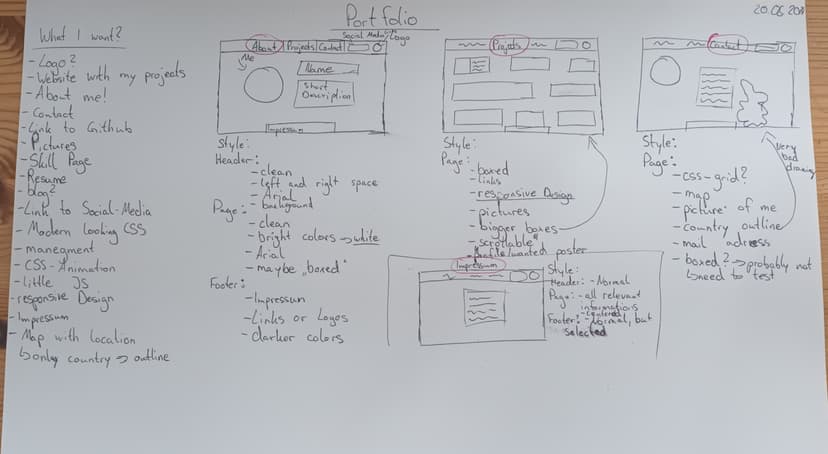 Portfolio
20.06.20
What I want?
- Logo?
- Website with my projects
- About me!
- Contact
- Link to Github
- Pictures
- Skill Page
- Resume
- blog?
- Link to Social-Media
- Modern looking CSS
- manegment
- CSS-Animation
- Little JS
- responsive Design
- Impressum
- Map with location
only country → outline
Social Media/Logo
About Projects Contact
Me
Name
Short
Description
Impressum
Style:
Header:
- clean
- left and right space
- Arial
- background
Page:
- clean
- bright colors → white
- Arial
- maybe "boxed"
Footer:
- Impressum
- Links or Logos
- darker colors
Projects
Style:
Page:
- boxed
- links
- responsive Design
- pictures
- bigger boxes
- scrollable
- profile/wanted poster
Contact
Style:
Page:
- css-grid?
- map
- picture of me
- country outline
- mail adress
- boxed? → probably not
need to test
very
bad
drawing
Impressum
Style:
Header: - Normal
Page: - all relevant
informations
- centered
Footer: - Normal, but
selected